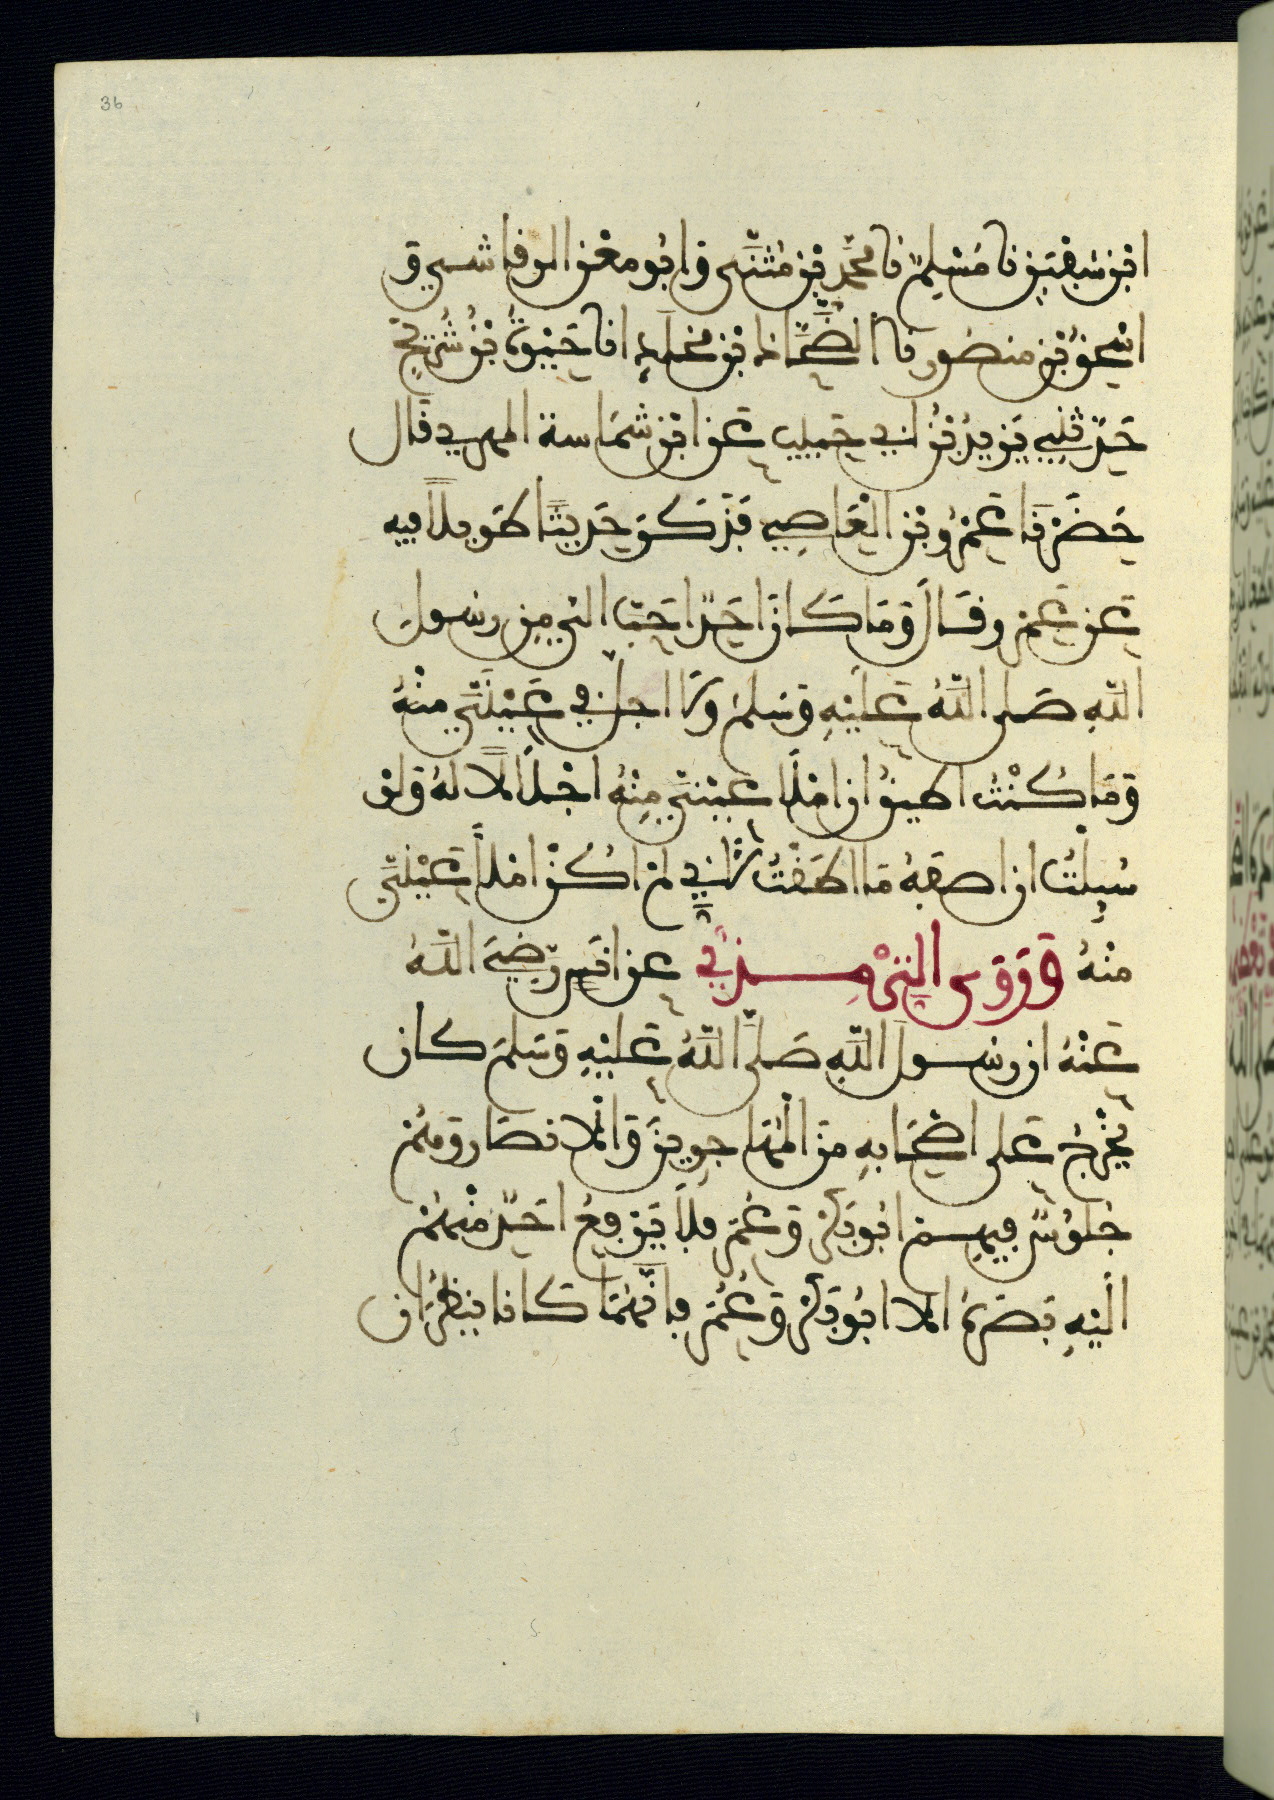 36
ابن سفين نا مسلم نا محمد بن مثنى وابو معن الرقاشي و
اسحق بن منصور نا الضحاك بن مخلد انا حيوة بن شريح
حدثني يزيد بن ابي حبيب عن ابن شماسة المهري قال
حضرنا عمرو بن العاصي فذكر حديثا طويلا فيه
عن عمرو قال وما كان احد احب الي من رسول
الله صلى الله عليه وسلم ولا اجل في عيني منه
وما كنت اطيق ان املا عيني منه اجلالا له ولو
سيلت ان اصفه ما اطقت لاني لم اكن املا عيني
منه وروى الترمذي عن انس رضي الله
عنه ان رسول الله صلى الله عليه وسلم كان
يخرج على اصحابه من المهاجرين والانصار وهم
جلوس فيهم ابو بكر وعمر فلا يرفع احد منهم
اليه بصره الا ابو بكر وعمر فانهما كانا ينظران